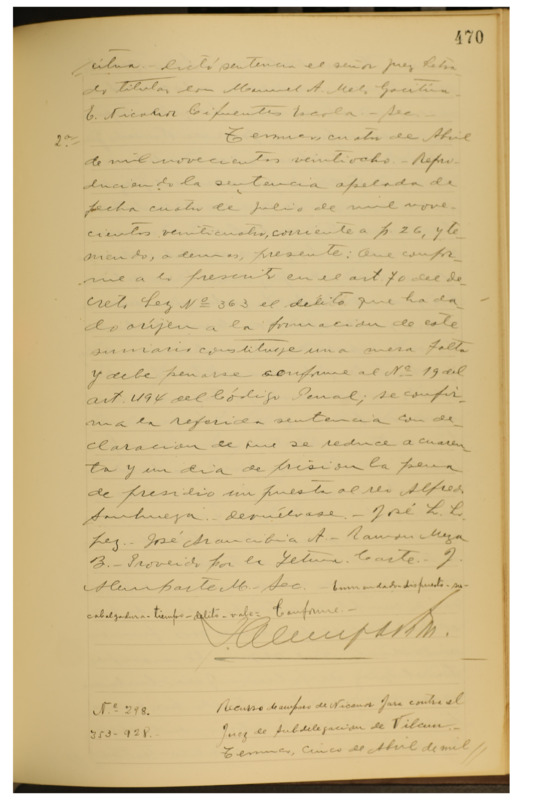 470
citua.- Dictó sentencia el señor Juez Letra
do titular don Manuel A.
E. Nicanor Cifuentes Sec.-
2a.
Temuco, cuatro de Abril
de mil novecientos veintiocho.- Repro-
duciendo la sentencia apelada de
fecha cuatro de julio de mil nove-
cientos veinticuatro, corriente a f. 26, y te-
niendo, ademas, presente: Que confor-
me a lo prescrito en el art 70 del de-
creto Ley Nº 363 el delito que ha da
do orijen a la formacion de este
sumario constituye una mera falta
y debe penarse conforme al Nº 19 del
art. 494 del Código Penal, se confir-
ma la referida sentencia con de-
claracion de que se reduce a cuaren
ta y un dia de prision la pena
de presidio impuesta al reo Alfredo
Sanhueza.- Devuélvase.- José L. L.
José Arancibia A.- Ramon Meza
B.- Proveido por la Iltma. Corte.- J.
M.- Sec.- Enmendado dispuesto
cabalgadura - tiempo - delito - vale. Conforme.-
Nº 298.
353-928.
Recurso de amparo de Nicanor Jara contra el
Juez de Subdelegacion de Vilcun.-
Temuco, cinco de Abril de mil